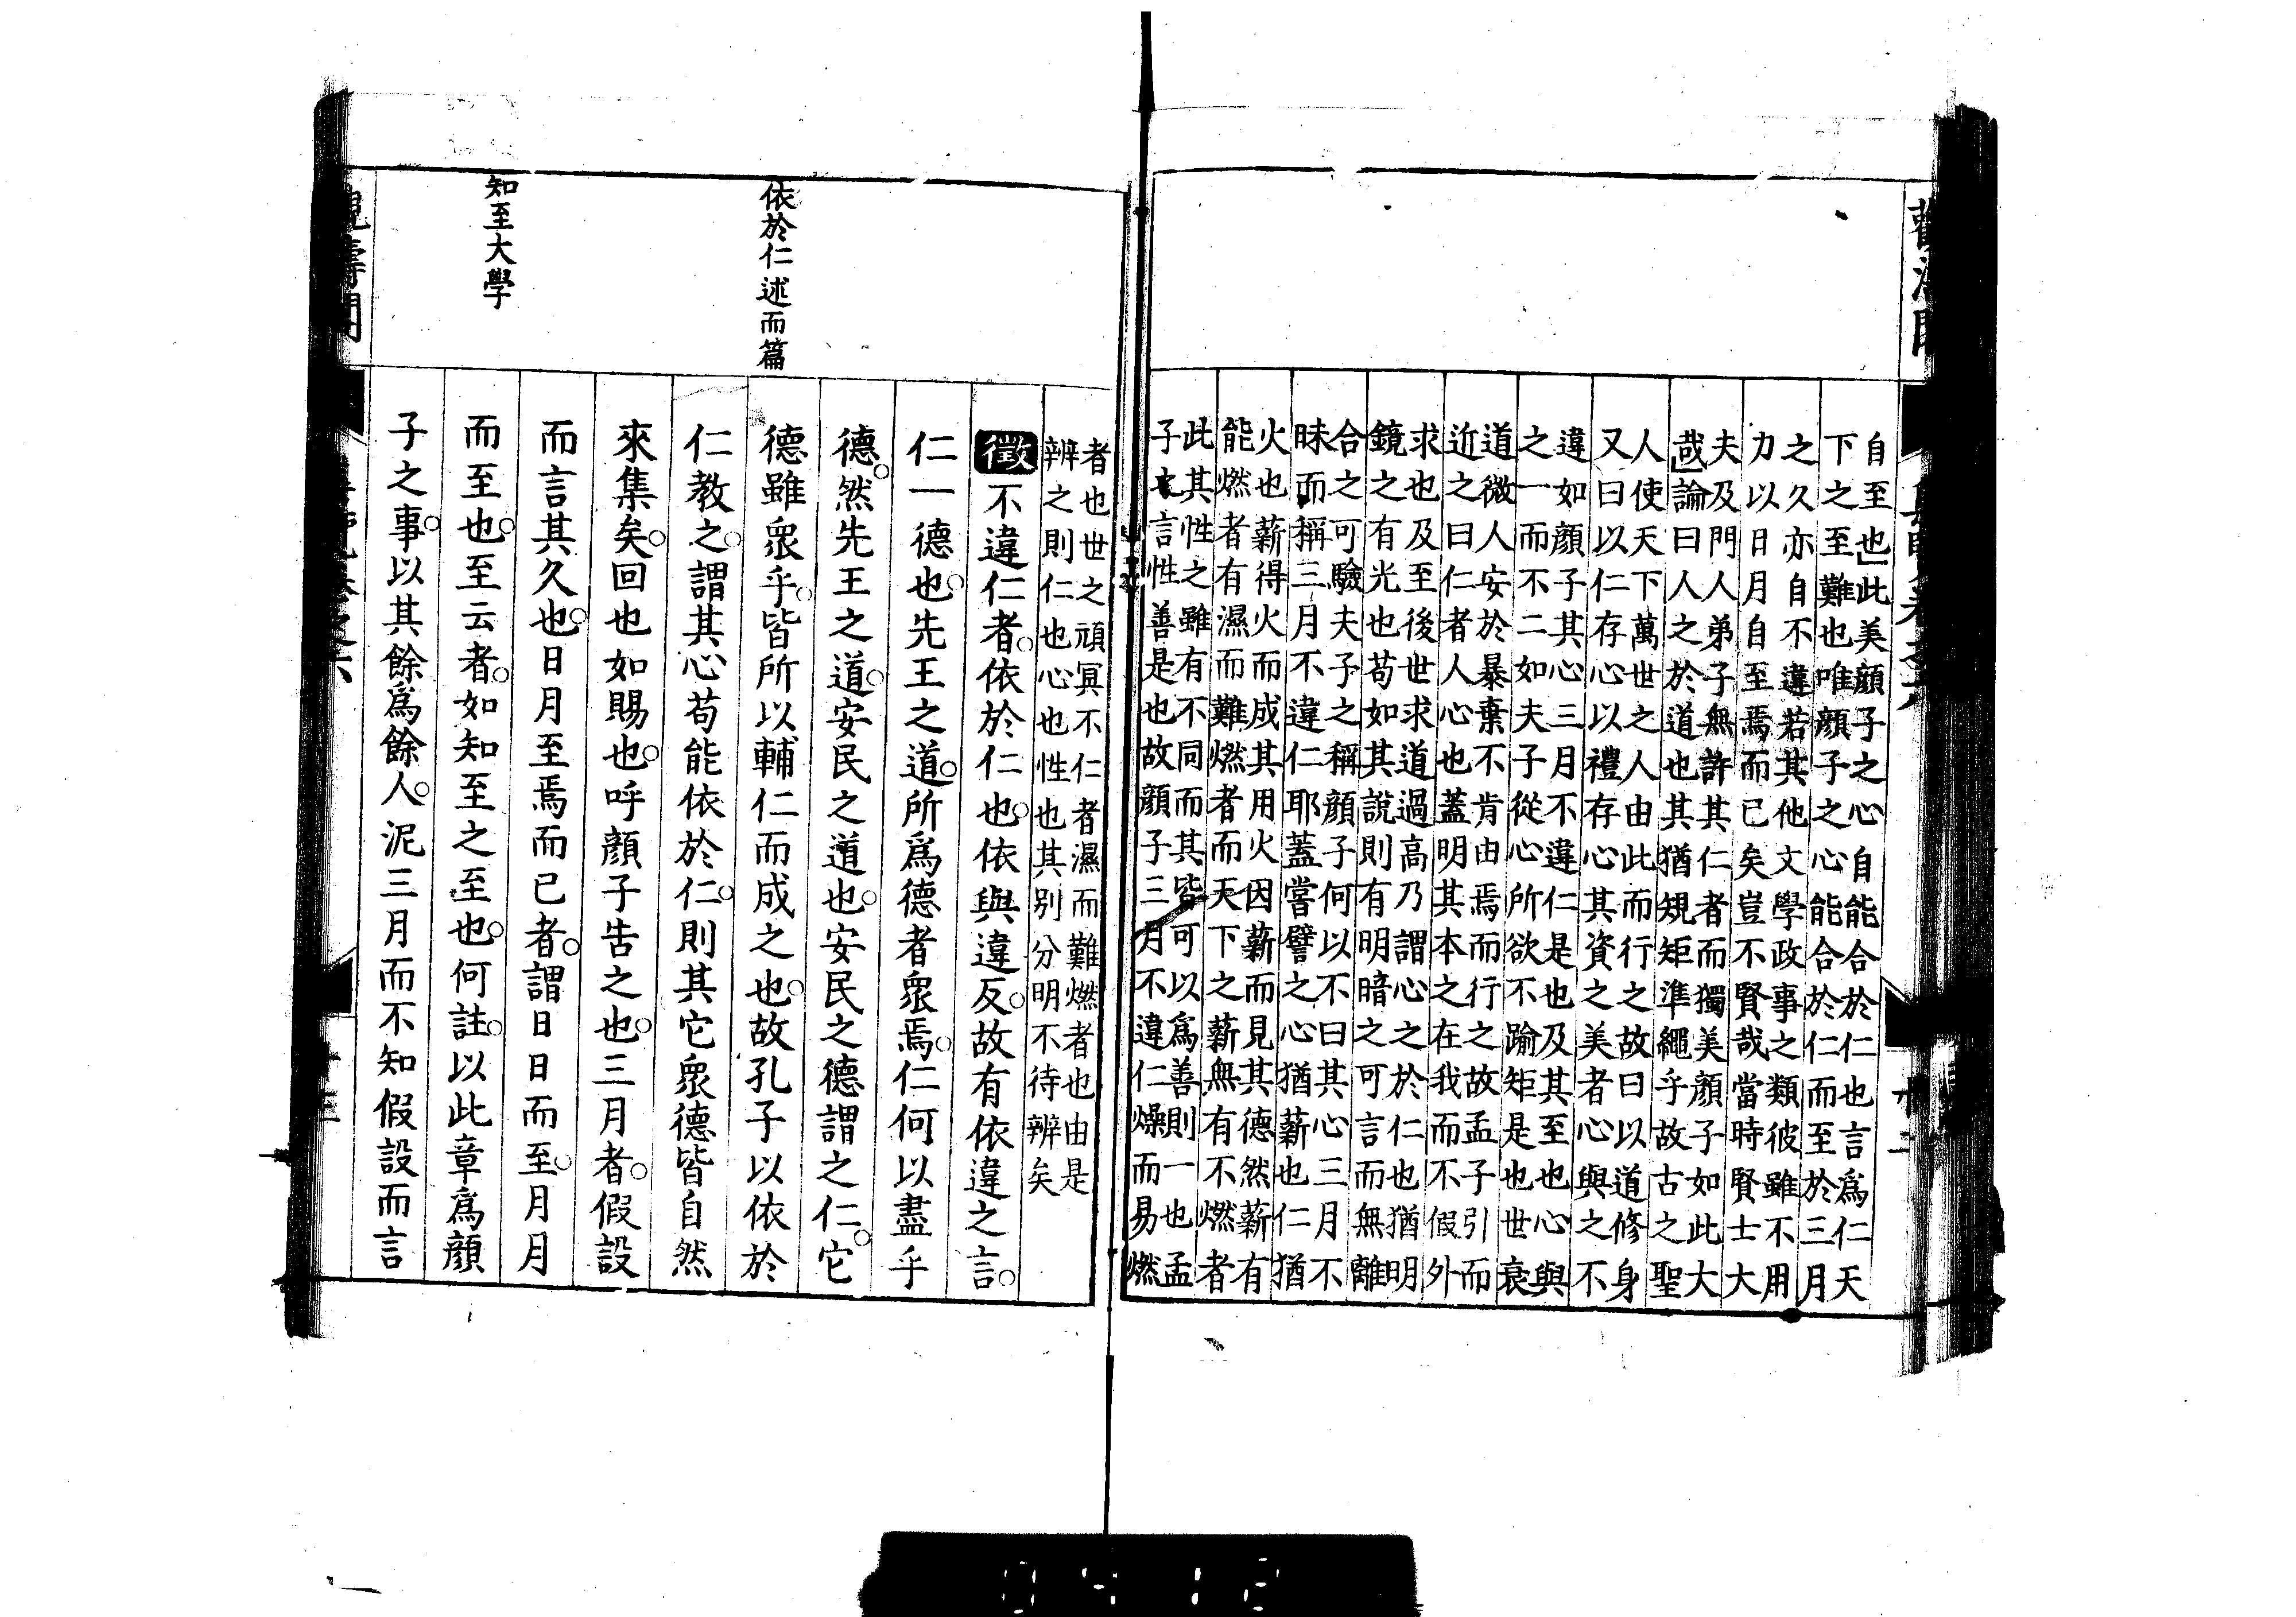 自至也」此美顏子之心自能合於仁也言爲仁天
下之至難也唯顏子之心能合於仁而至於三月
之久亦自不違若其他文學政事之類彼雖不用
力以日月自至焉而已矣豈不賢哉當時賢士大
夫及門人弟子無許其仁者而獨美顏子如此大
哉」論曰人之於道也其猶規矩準繩乎故古之聖
人使天下萬世之人由此而行之故曰以道修身
又曰以仁存心以禮存心其資之美者心與之不
違如顏子其心三月不違仁是也及其至也心與
之一而不二如夫子從心所欲不踰矩是也世衰
道微人安於暴棄不肯由焉而行之故孟子引而
近之曰仁者人心也蓋明其本之在我而不假外
求也及至後世求道過高乃謂心之於仁也猶明
鏡之有光也苟如其說則有明暗之可言而無離
合之可驗夫子之稱顏子何以不曰其心三月不
昧而稱三月不違仁耶蓋嘗譬之心猶薪也仁猶
火也薪得火而成其用火因薪而見其德然薪有
能燃者有濕而難燃者而天下之薪無有不燃者
此其性之雖有不同而其皆可以爲善則一也孟
子之言性善是也故顏子三月不違仁燥而易燃
者也世之頑冥不仁者濕而難燃者也由是
辨之則仁也心也性也其別分明不待辨矣
徵不違仁者。依於仁也。依與違反。故有依違之言。
仁一德也。先王之道。所爲德者衆焉。仁何以盡乎
德。然先王之道。安民之道也。安民之德謂之仁。它
德雖衆乎。皆所以輔仁而成之也。故孔子以依於
仁教之。謂其心苟能依於仁。則其它衆德皆自然
來集矣。回也如賜也。呼顏子告之也。三月者。假設
而言其久也。日月至焉而已者。謂日日而至。月月
而至也。至云者。如知至之至也。何註。以此章爲顏
子之事。以其餘爲餘人。泥三月而不知假設而言
依於仁述而篇
知至大學